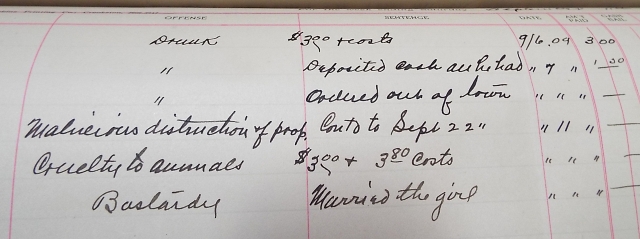 OFFENSE SENTENCE DATE
Drunk $3.00 + costs 9/6 09 3.00
" Deposited cash all he had " 7 "
" Ordered out of town " " " —
Malicious distruction of prop. Contd to Sept 22" " 11 " —
Cruelty to animals $3.00 + 3.80 costs " " "
Bastardy Married the girl " " " —